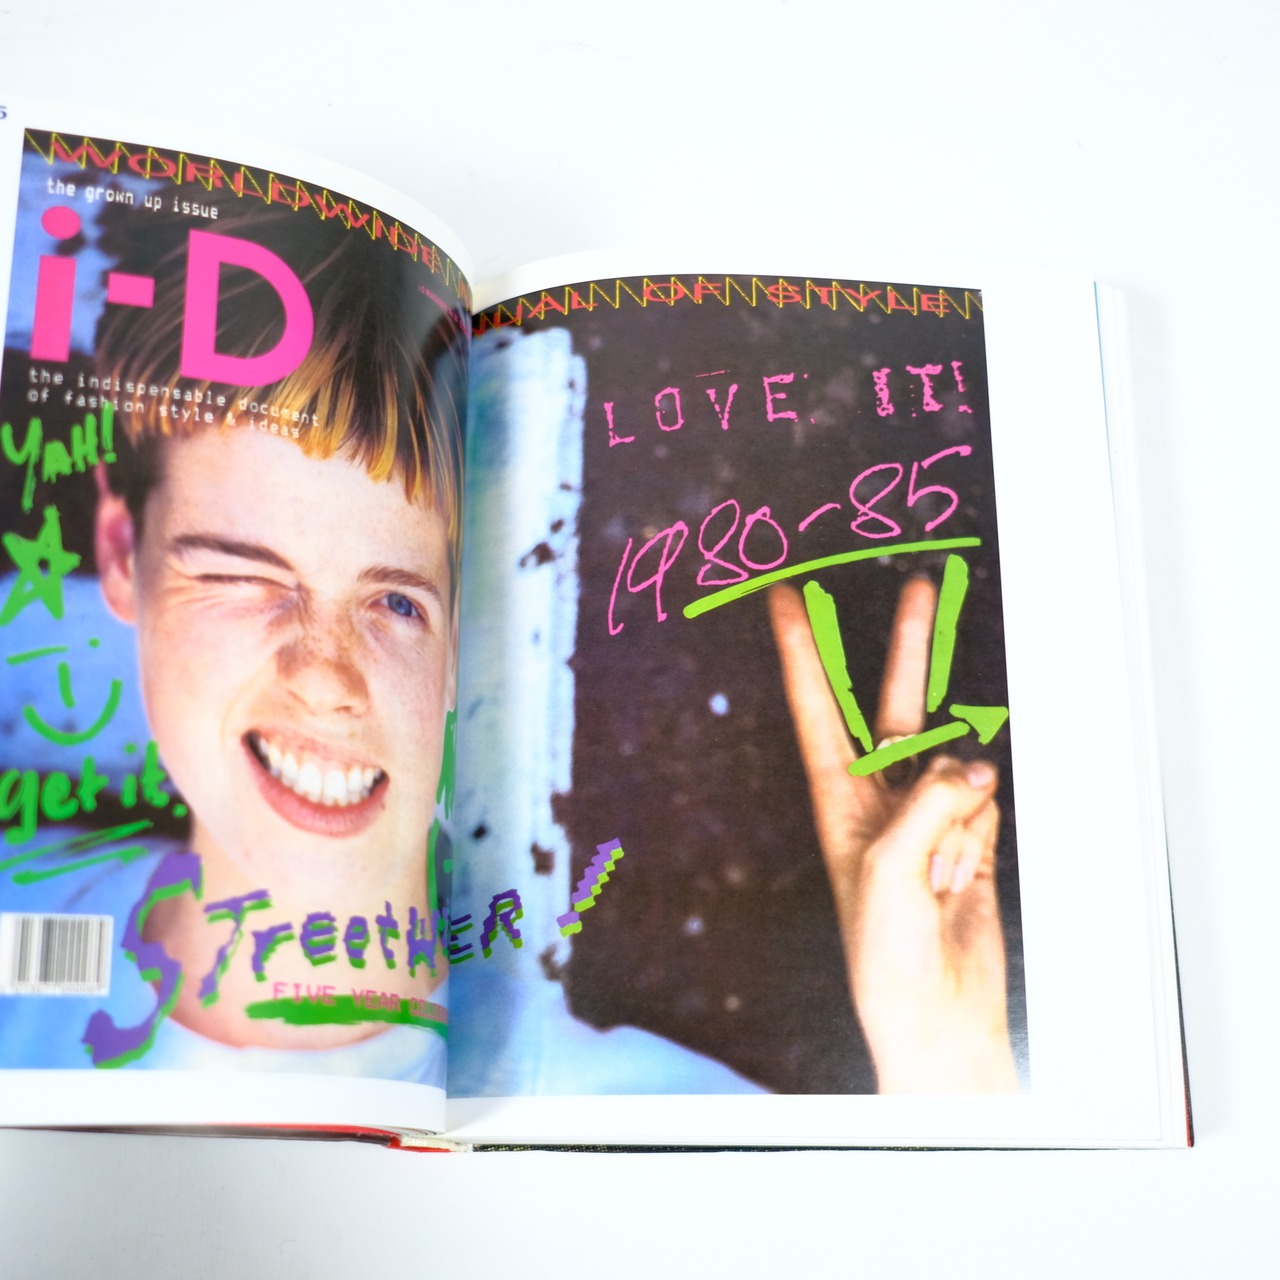 5
WORLDWIDE
the grown up issue
i-D
the indispensable document
of fashion style & ideas
YAH!
get it.
STreetHER!
FIVE YEAR
UAL OF STYLE
LOVE IT!
1980-85